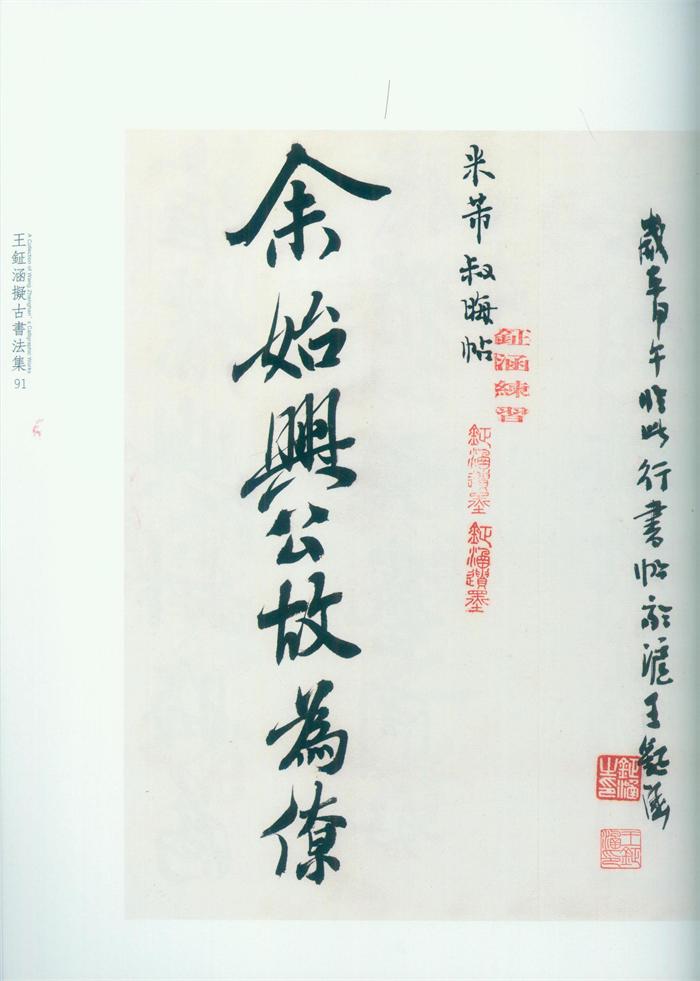 歲在甲午臨此行書帖於滬王鉦涵
鉦涵之印
王鉦涵印
米芾叔晦帖
鉦涵練習
鉦涵遺墨
鉦涵遺墨
余始興公故為僚
A Collection of Wang Zhenghan's Calligraphic Works
王鉦涵擬古書法集 91